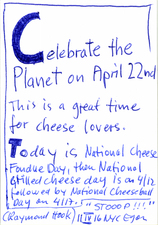 Celebrate the
Planet on April 22nd
This is a great time
for cheese lovers.
Today is National Cheese
Fondue Day, then National
Grilled cheese day is an 4/12
followed by National Cheeseball
Day on 4/17. "STOOOP!!!"
(Raymond Hook) 11 IV 16 NYC